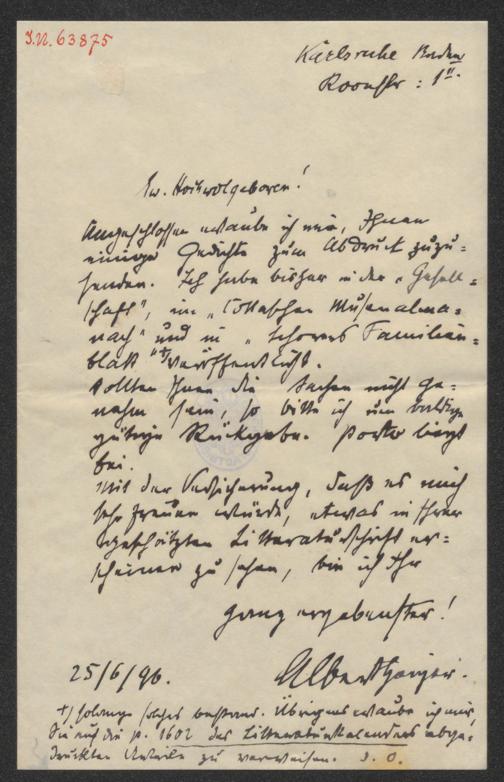 I.N. 63875
Karlsruhe Baden
Roonstr: 1 II.
Ew. Hochwolgeboren!
Angeschlossen erlaube ich mir, Ihnen
einige Gedichte zum Abdruck zuzu=
senden. Ich habe bisher in der „Gesell=
schaft", im „Cottaschen Musenalma=
nach" und in „Schorers Familien=
blatt" +) veröffentlicht.
Sollten Ihnen die Sachen nicht ge=
nehm sein, so bitte ich um baldige
gütige Rückgabe. Porto liegt
bei.
Mit der Versicherung, daß es mich
sehr freuen würde, etwas in Ihrer
geschätzten Litteraturschrift er=
scheinen zu sehen, bin ich Ihr
ganz ergebenster!
Albert Geiger.
25/6/96.
+) solange solches bestand. Übrigens erlaube ich mir,
Sie auf die p. 1602 des Litteraturkalenders abge=
druckten Urteile zu verweisen. D. O.